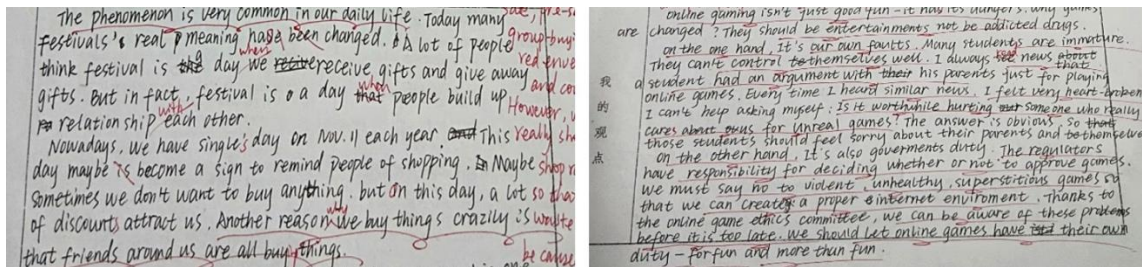 The phenomenon is very common in our daily life. Today many
festivals's real meaning have been changed. A lot of people
think festival is day we when receive gifts and give away
gifts. But in fact, festival is a day that when people build up
relationship with each other.
Nowadays, we have single's day on Nov. 11 each year. This
day maybe is become a sign to remind people of shopping. Maybe
sometimes we don't want to buy anything. but on this day, a lot
of discounts attract us. Another reason why we buy things crazily is
that friends around us are all buy things.
group buy
red enve
and co
However,
really sh
shop
so tha
waste
be cause
online gaming isn't just good fun - it has its dangers. Why
are changed? They should be entertainments not be addicted drugs.
on the one hand. It's our own faults. Many students are immature.
They can't control themselves well. I always news about that
a student had an argument with their his parents just for playing
online games. Every time I heard similar news, I felt very heart-broken
I can't help asking myself: Is it worthwhile hurting someone who really
cares about us for unreal games? The answer is obvious, so that
those students should feel sorry about their parents and themselve
on the other hand, It's also goverments duty. The regulators
have responsibility for deciding whether or not to approve games.
we must say no to violent, unhealthy, superstitious games so
that we can create a proper internet enviroment. Thanks to
the online game ethics committee, we can be aware of these problems
before it is too late. We should let online games have their own
duty - for fun and more than fun.
我的观点